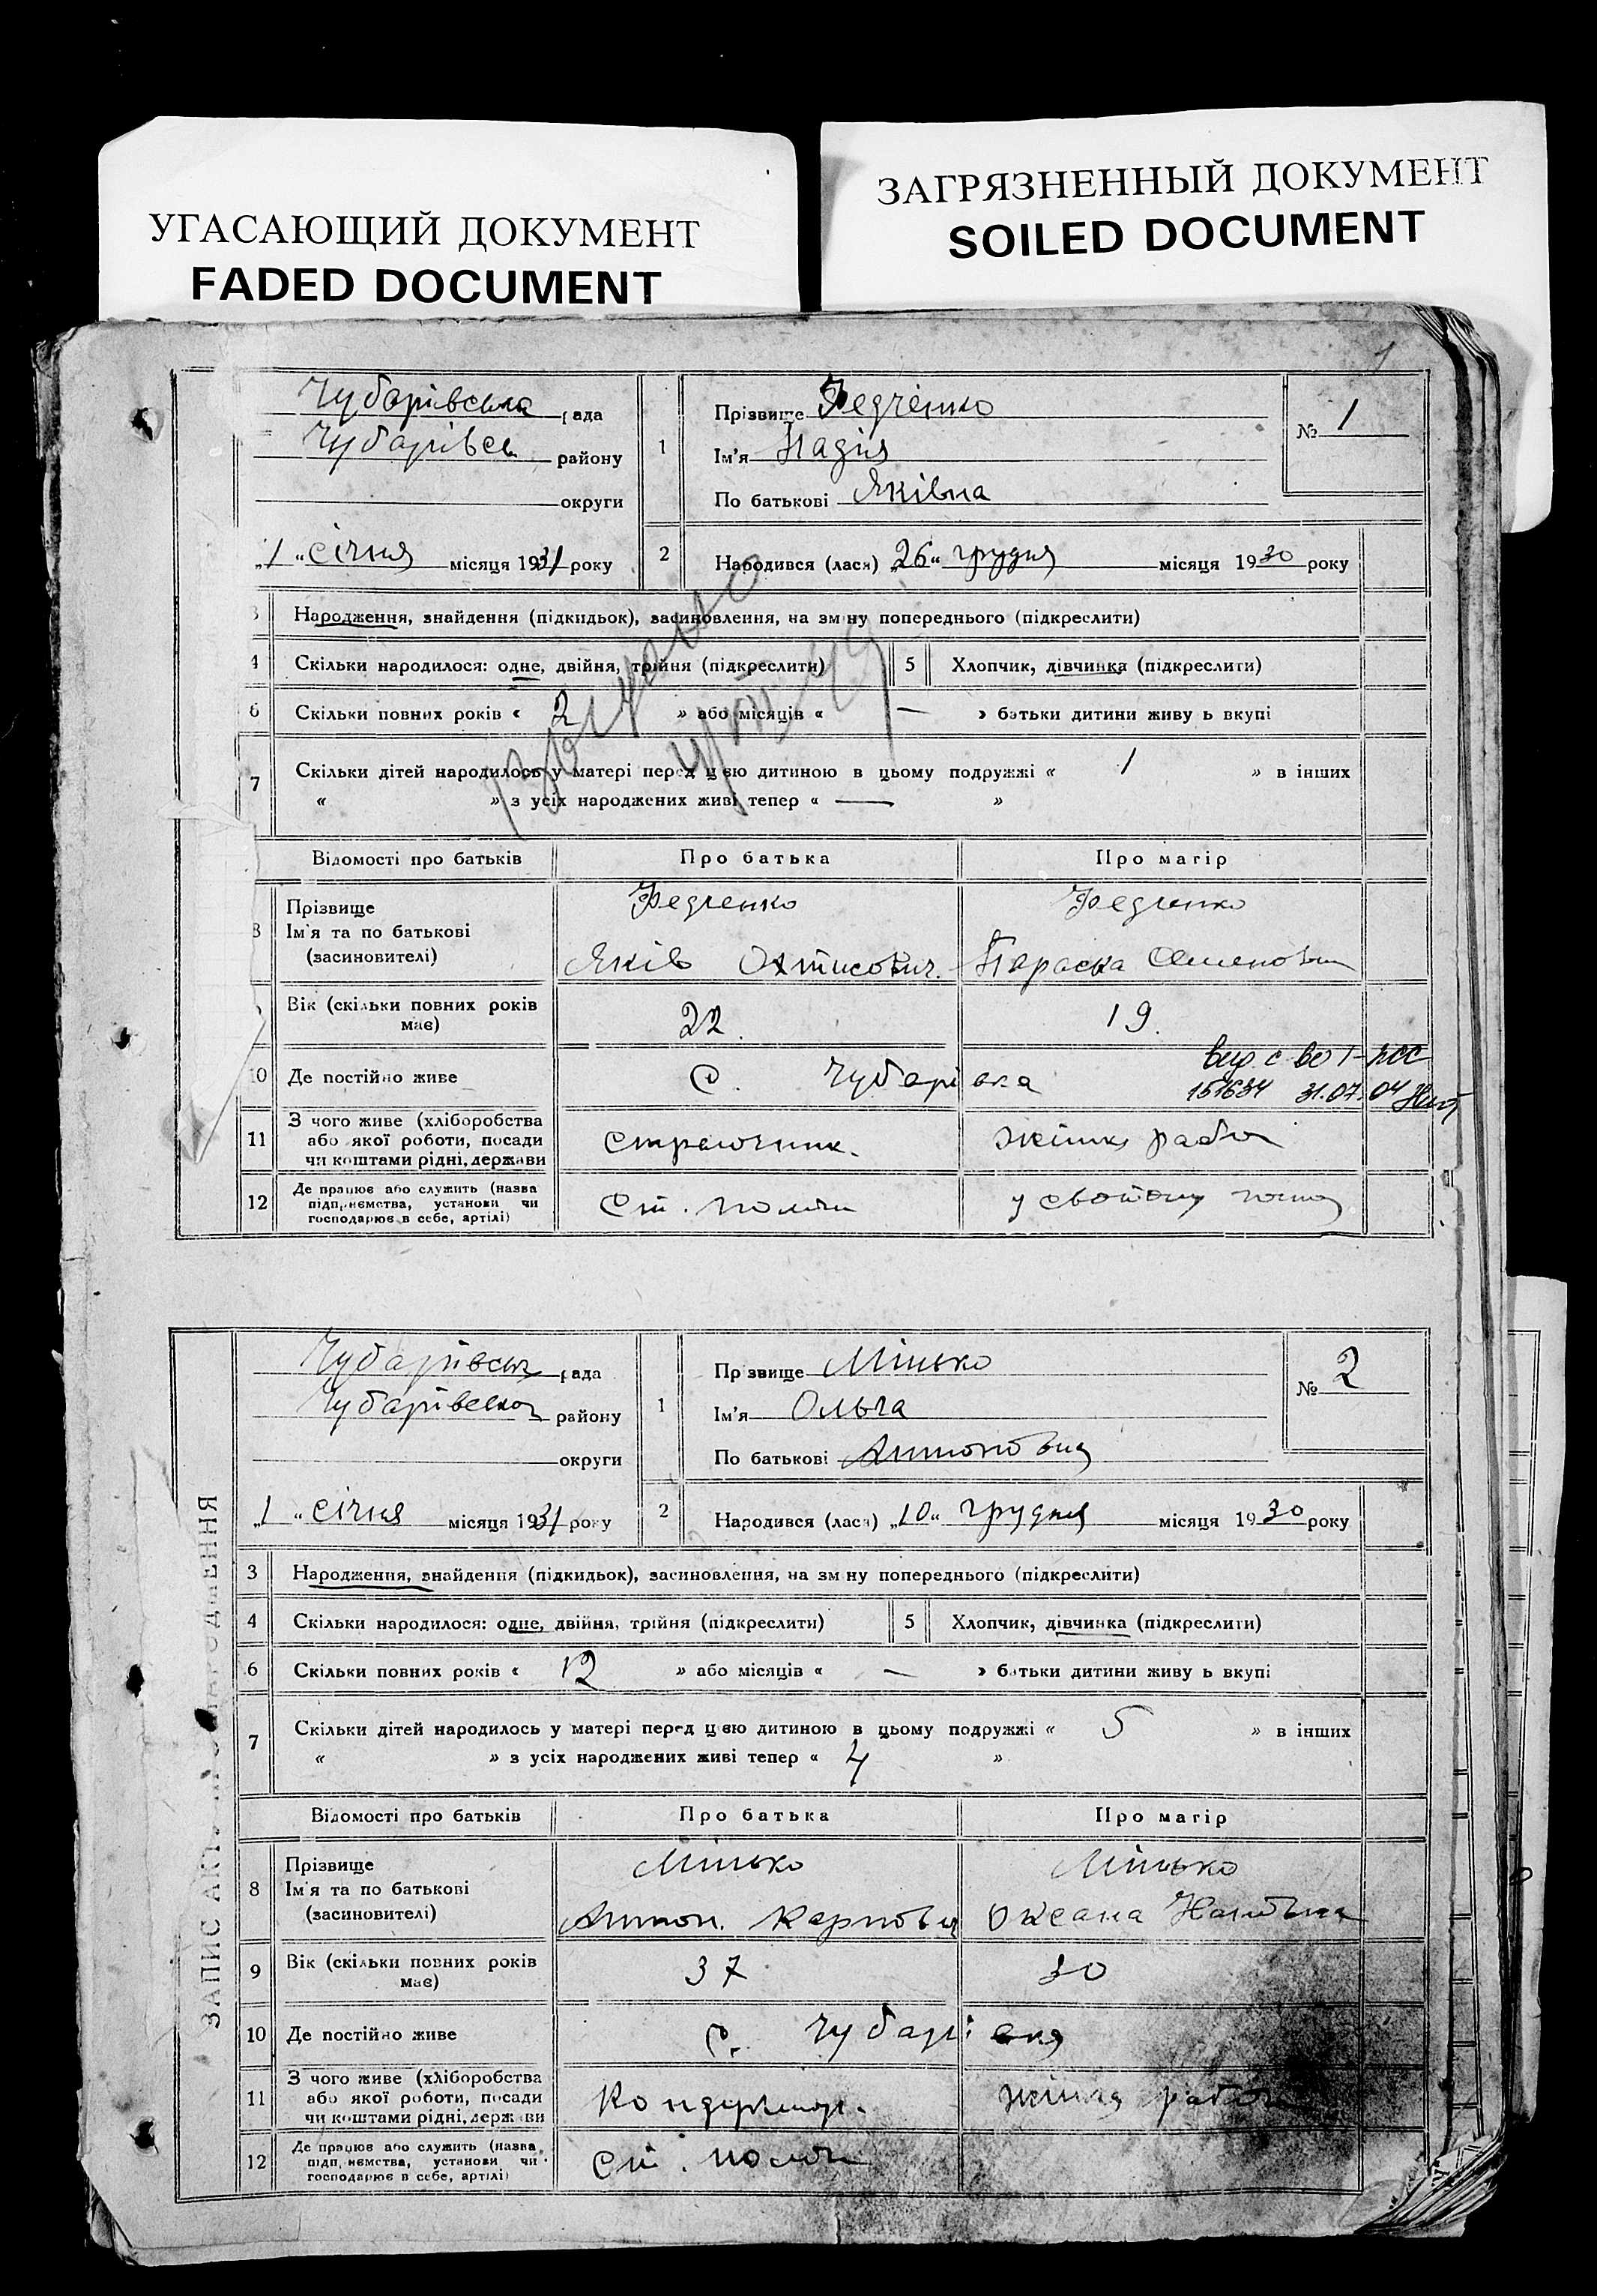 УГАСАЮЩИЙ ДОКУМЕНТ
FADED DOCUMENT
ЗАГРЯЗНЕННЫЙ ДОКУМЕНТ
SOILED DOCUMENT
1
Чубарівська рада
Чубарівськ району
округи
„1“ січня місяця 1931 року
1
Прізвище Федченко
Ім'я Надія
По батькові Яківна
№ 1
2 Народився (лася) „26“ грудня місяця 1930 року
3 Народження, знайдення (підкидьок), засиновлення, на зміну попереднього (підкреслити)
4 Скільки народилося: одне, двійня, трійня (підкреслити) 5 Хлопчик, дівчинка (підкреслити)
6 Скільки повних років « 2 » або місяців « — » батьки дитини живуть вкупі
7 Скільки дітей народилось у матері перед цією дитиною в цьому подружжі « 1 » в інших
« » з усіх народжених живі тепер « — »
Відомості про батьків Про батька Про матір
8 Прізвище
Ім'я та по батькові
(засиновителі)
Федченко Федченко
Яків Параска
Вік (скільки повних років має) 22. 19.
10 Де постійно живе с. Чубарівка
151634 31.07.04
11 З чого живе (хліборобства або якої роботи, посади чи коштами рідні, держави
жінка
12 Де працює або служить (назва підприємства, установи чи господарює в себе, артілі)
у свойому
ЗАПИС АКТ
Чубарівськ рада
Чубарівської району
округи
„1“ січня місяця 1931 року
1
Прізвище Мінько
Ім'я Ольга
По батькові Антоновна
№ 2
2 Народився (лася) „10“ грудня місяця 1930 року
3 Народження, знайдення (підкидьок), засиновлення, на зміну попереднього (підкреслити)
4 Скільки народилося: одне, двійня, трійня (підкреслити) 5 Хлопчик, дівчинка (підкреслити)
6 Скільки повних років « 12 » або місяців « — » батьки дитини живуть вкупі
7 Скільки дітей народилось у матері перед цією дитиною в цьому подружжі « 5 » в інших
« » з усіх народжених живі тепер « 4 »
Відомості про батьків Про батька Про матір
8 Прізвище
Ім'я та по батькові
(засиновителі)
Мінько Мінько
Антон. Карпович Оксана
9 Вік (скільки повних років має) 37 30
10 Де постійно живе с. Чубарівка
11 З чого живе (хліборобства або якої роботи, посади чи коштами рідні, держави
Кондуктор. жінка
12 Де працює або служить (назва підприємства, установи чи господарює в себе, артілі)